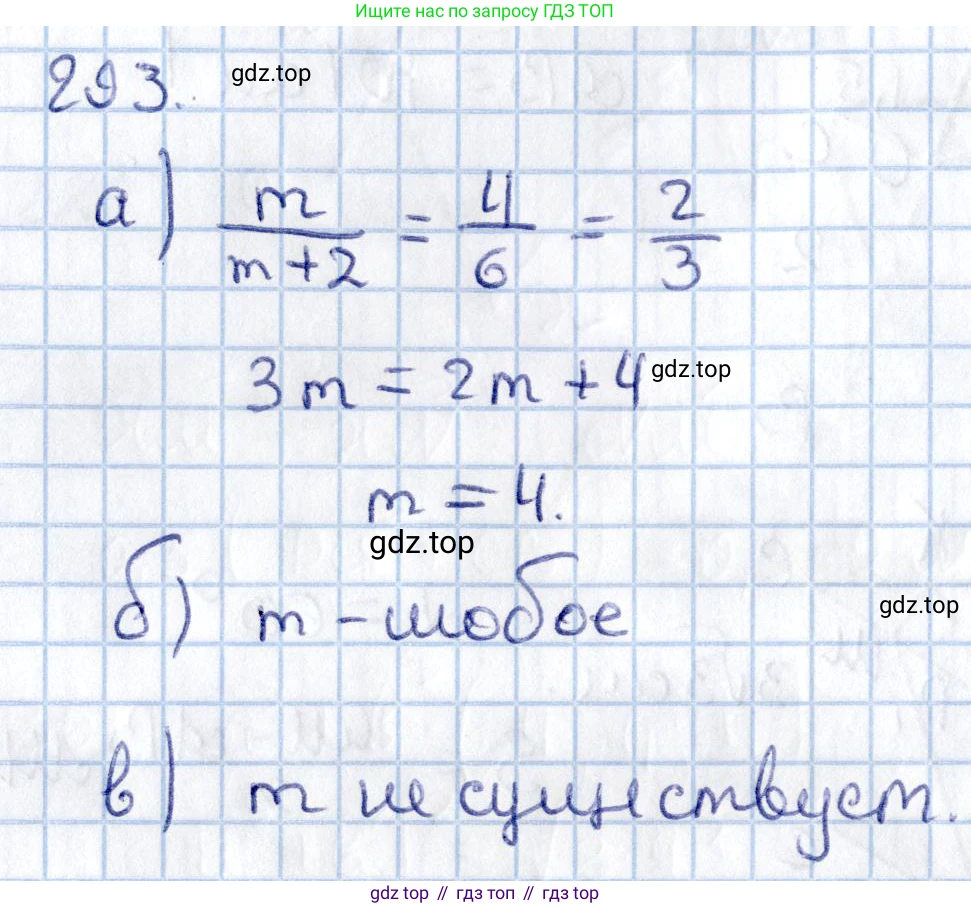 Ищите нас по запросу ГДЗ ТОП
293. gdz.top
а) m/(m+2) = 4/6 = 2/3
3m = 2m + 4 gdz.top
m = 4.
gdz.top
б) m - любое
gdz.top
в) m не существует.
gdz top // гдз топ // gdz top